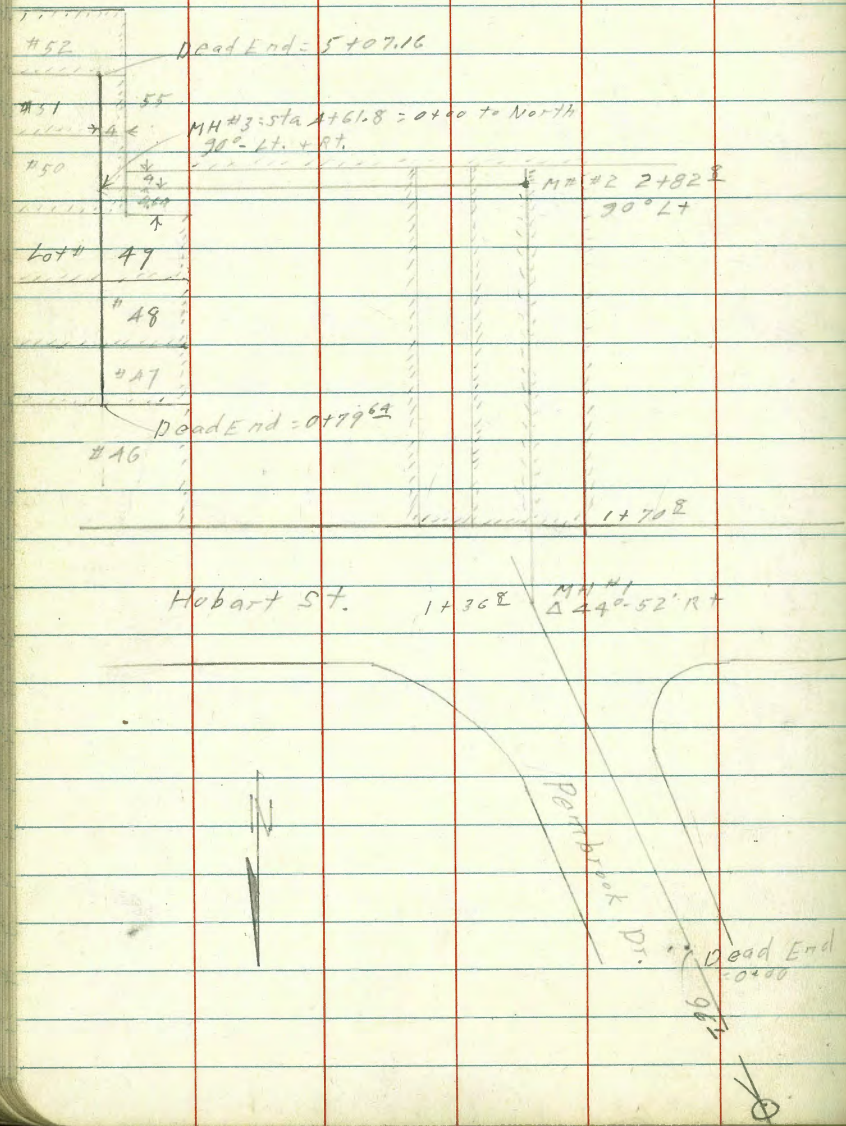 #52
Dead End = 5+07.16
#51
55
4
MH #3 = sta 4+61.8 = 0+00 to North
90°- Lt. + Rt.
#50
4
MH #2 2+82 8
90° Lt
Lot # 49
# 48
#47
Dead End = 0+79 64
#46
1+70 8
Hobart St.
1+36 8
MH #1
Δ 44°-52' Rt
N
Pembrook Dr.
Dead End
=0+00